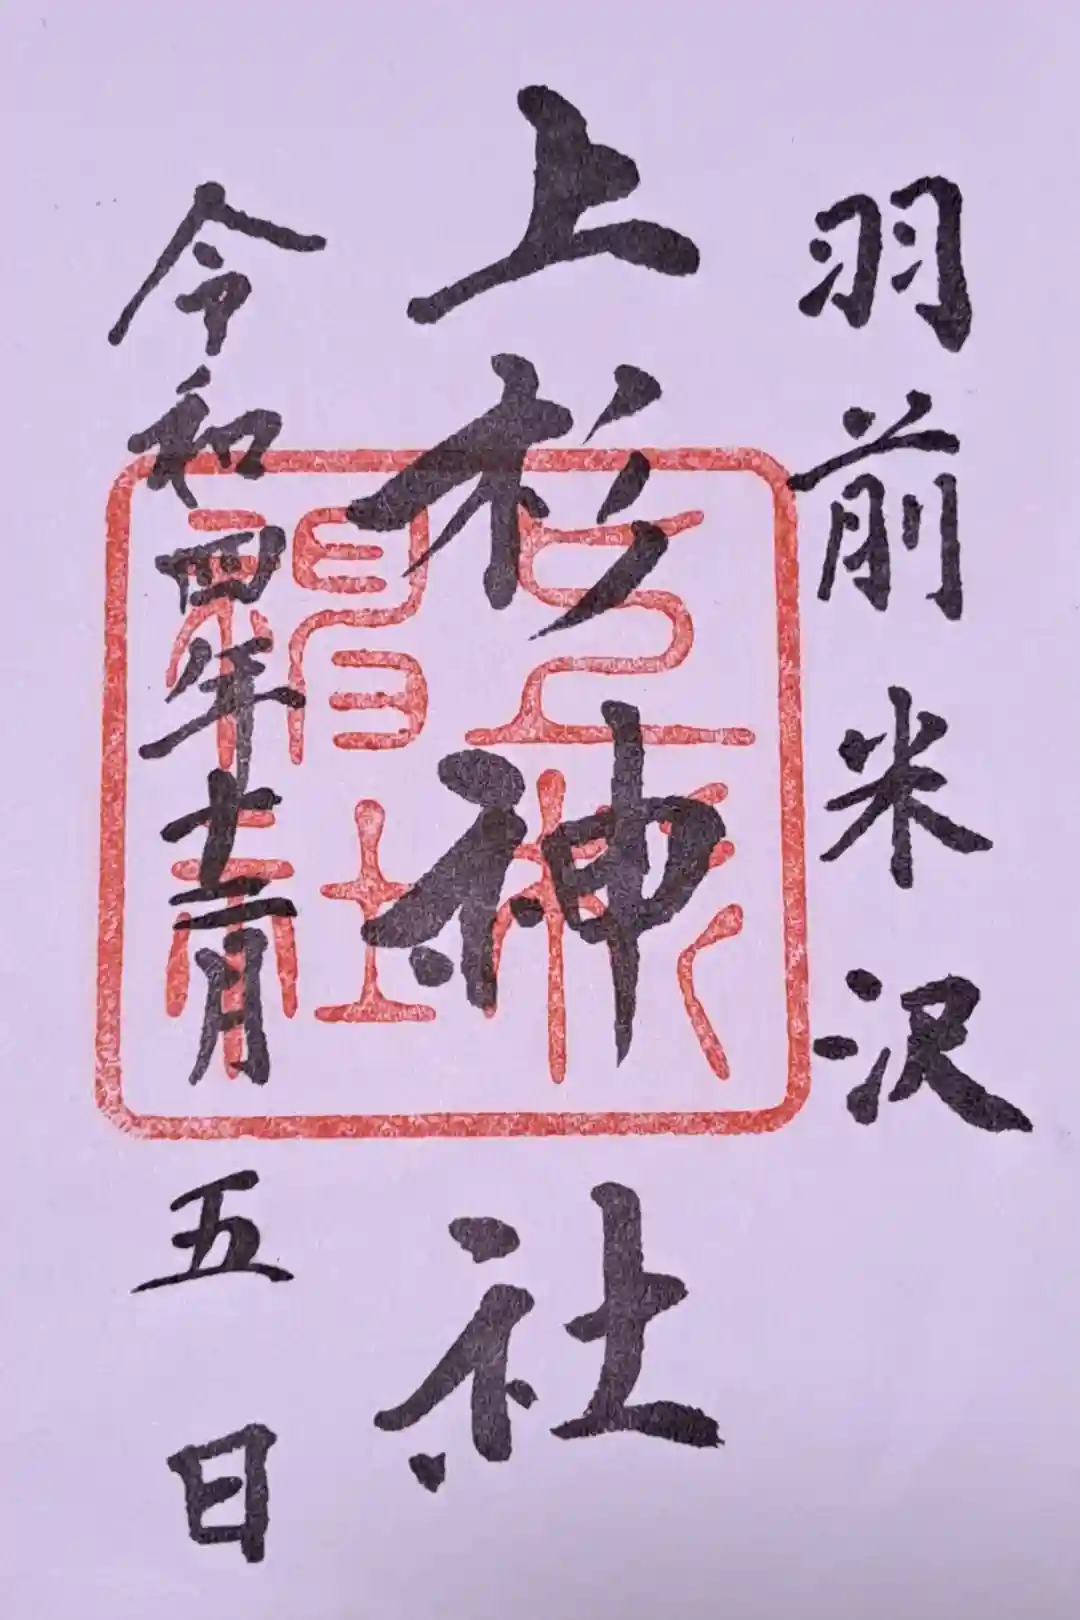 羽前米沢
上杉神社
令和四年十二月五日
上杉
神社